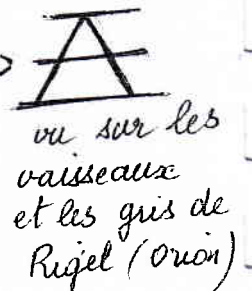 vu sur les
vaisseaux
et les gris de
Rigel (Orion)